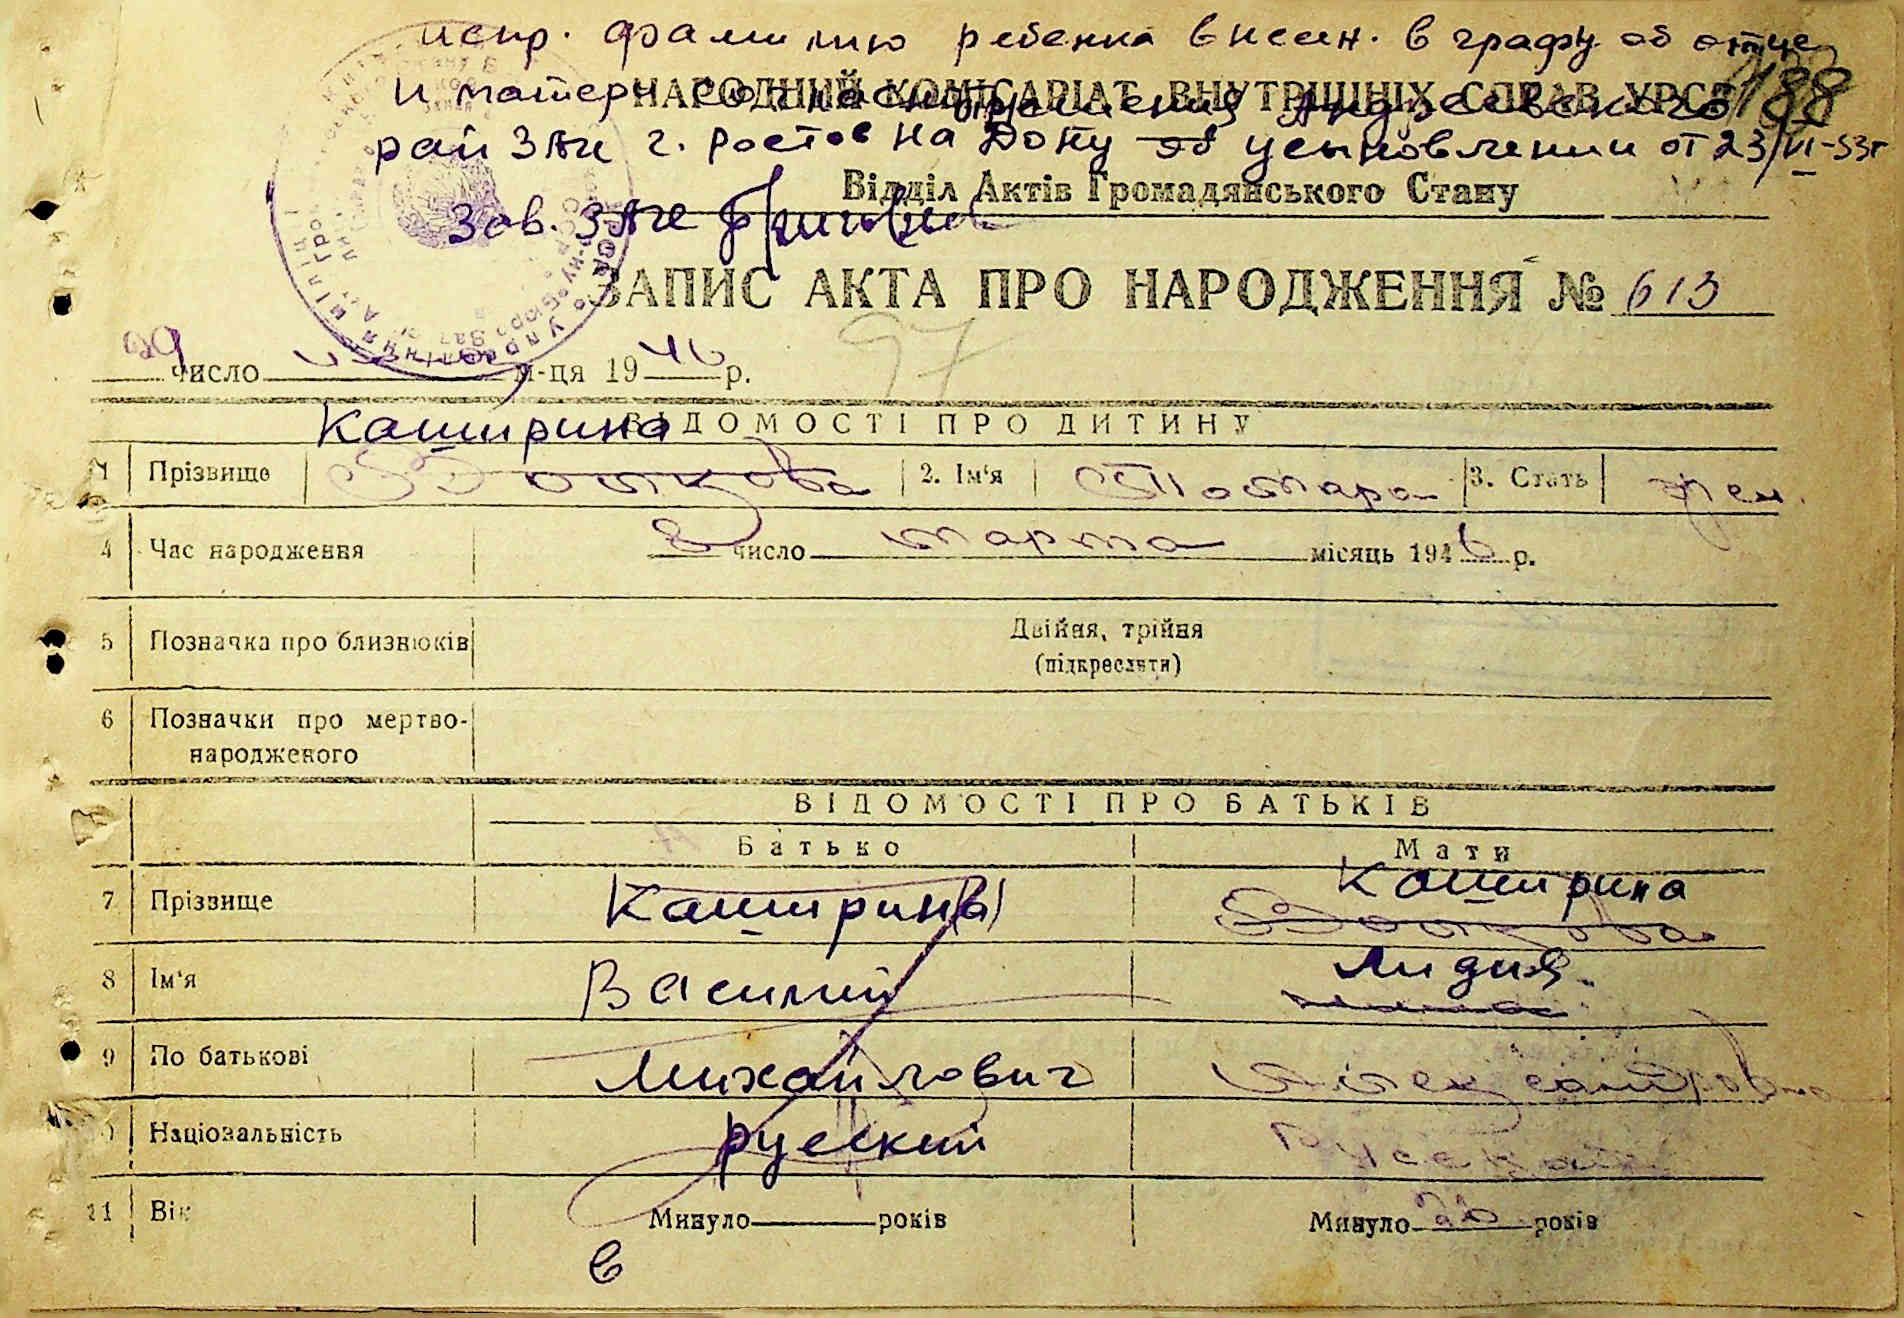 испр. фамилию ребенка внесен. в графу об отце
188
НАРОДНИЙ КОМІСАРІАТ ВНУТРІШНІХ СПРАВ УРСР
и матери
рай ЗАГС г. Ростов на Дону об усыновлении от 23/VI-53г
Відділ Актів Громадянського Стану
Зав. ЗАГС
ЗАПИС АКТА ПРО НАРОДЖЕННЯ № 613
97
29 число м-ця 1946 р.
ВІДОМОСТІ ПРО ДИТИНУ
Каширина
1 Прізвище 2. Ім'я Тамара 3. Стать жен.
4 Час народження 8 число марта місяць 1946 р.
5 Позначка про близнюків Двійня, трійня
(підкреслити)
6 Позначки про мертво-
народженого
ВІДОМОСТІ ПРО БАТЬКІВ
Батько Мати
Каширина
7 Прізвище Каширин
8 Ім'я Василий Лидия
9 По батькові Михайлович Александровна
Національність русский Русская
11 Вік Минуло років Минуло років
в